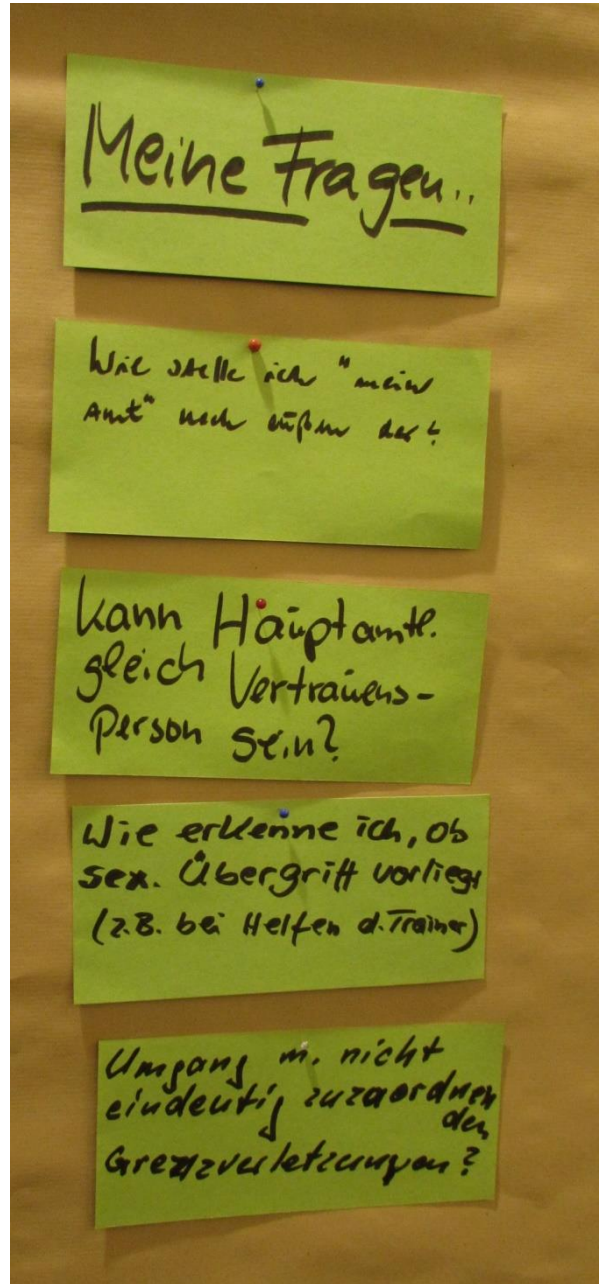 Meine Fragen..
Wie stelle ich "mein
Amt" nach außen dar?
Kann Hauptamtl.
gleich Vertrauens-
person sein?
Wie erkenne ich, ob
sex. Übergriff vorliegt
(z.B. bei Helfen d. Trainer)
Umgang m. nicht
eindeutig zuzuordnen
den
Grenzverletzungen?